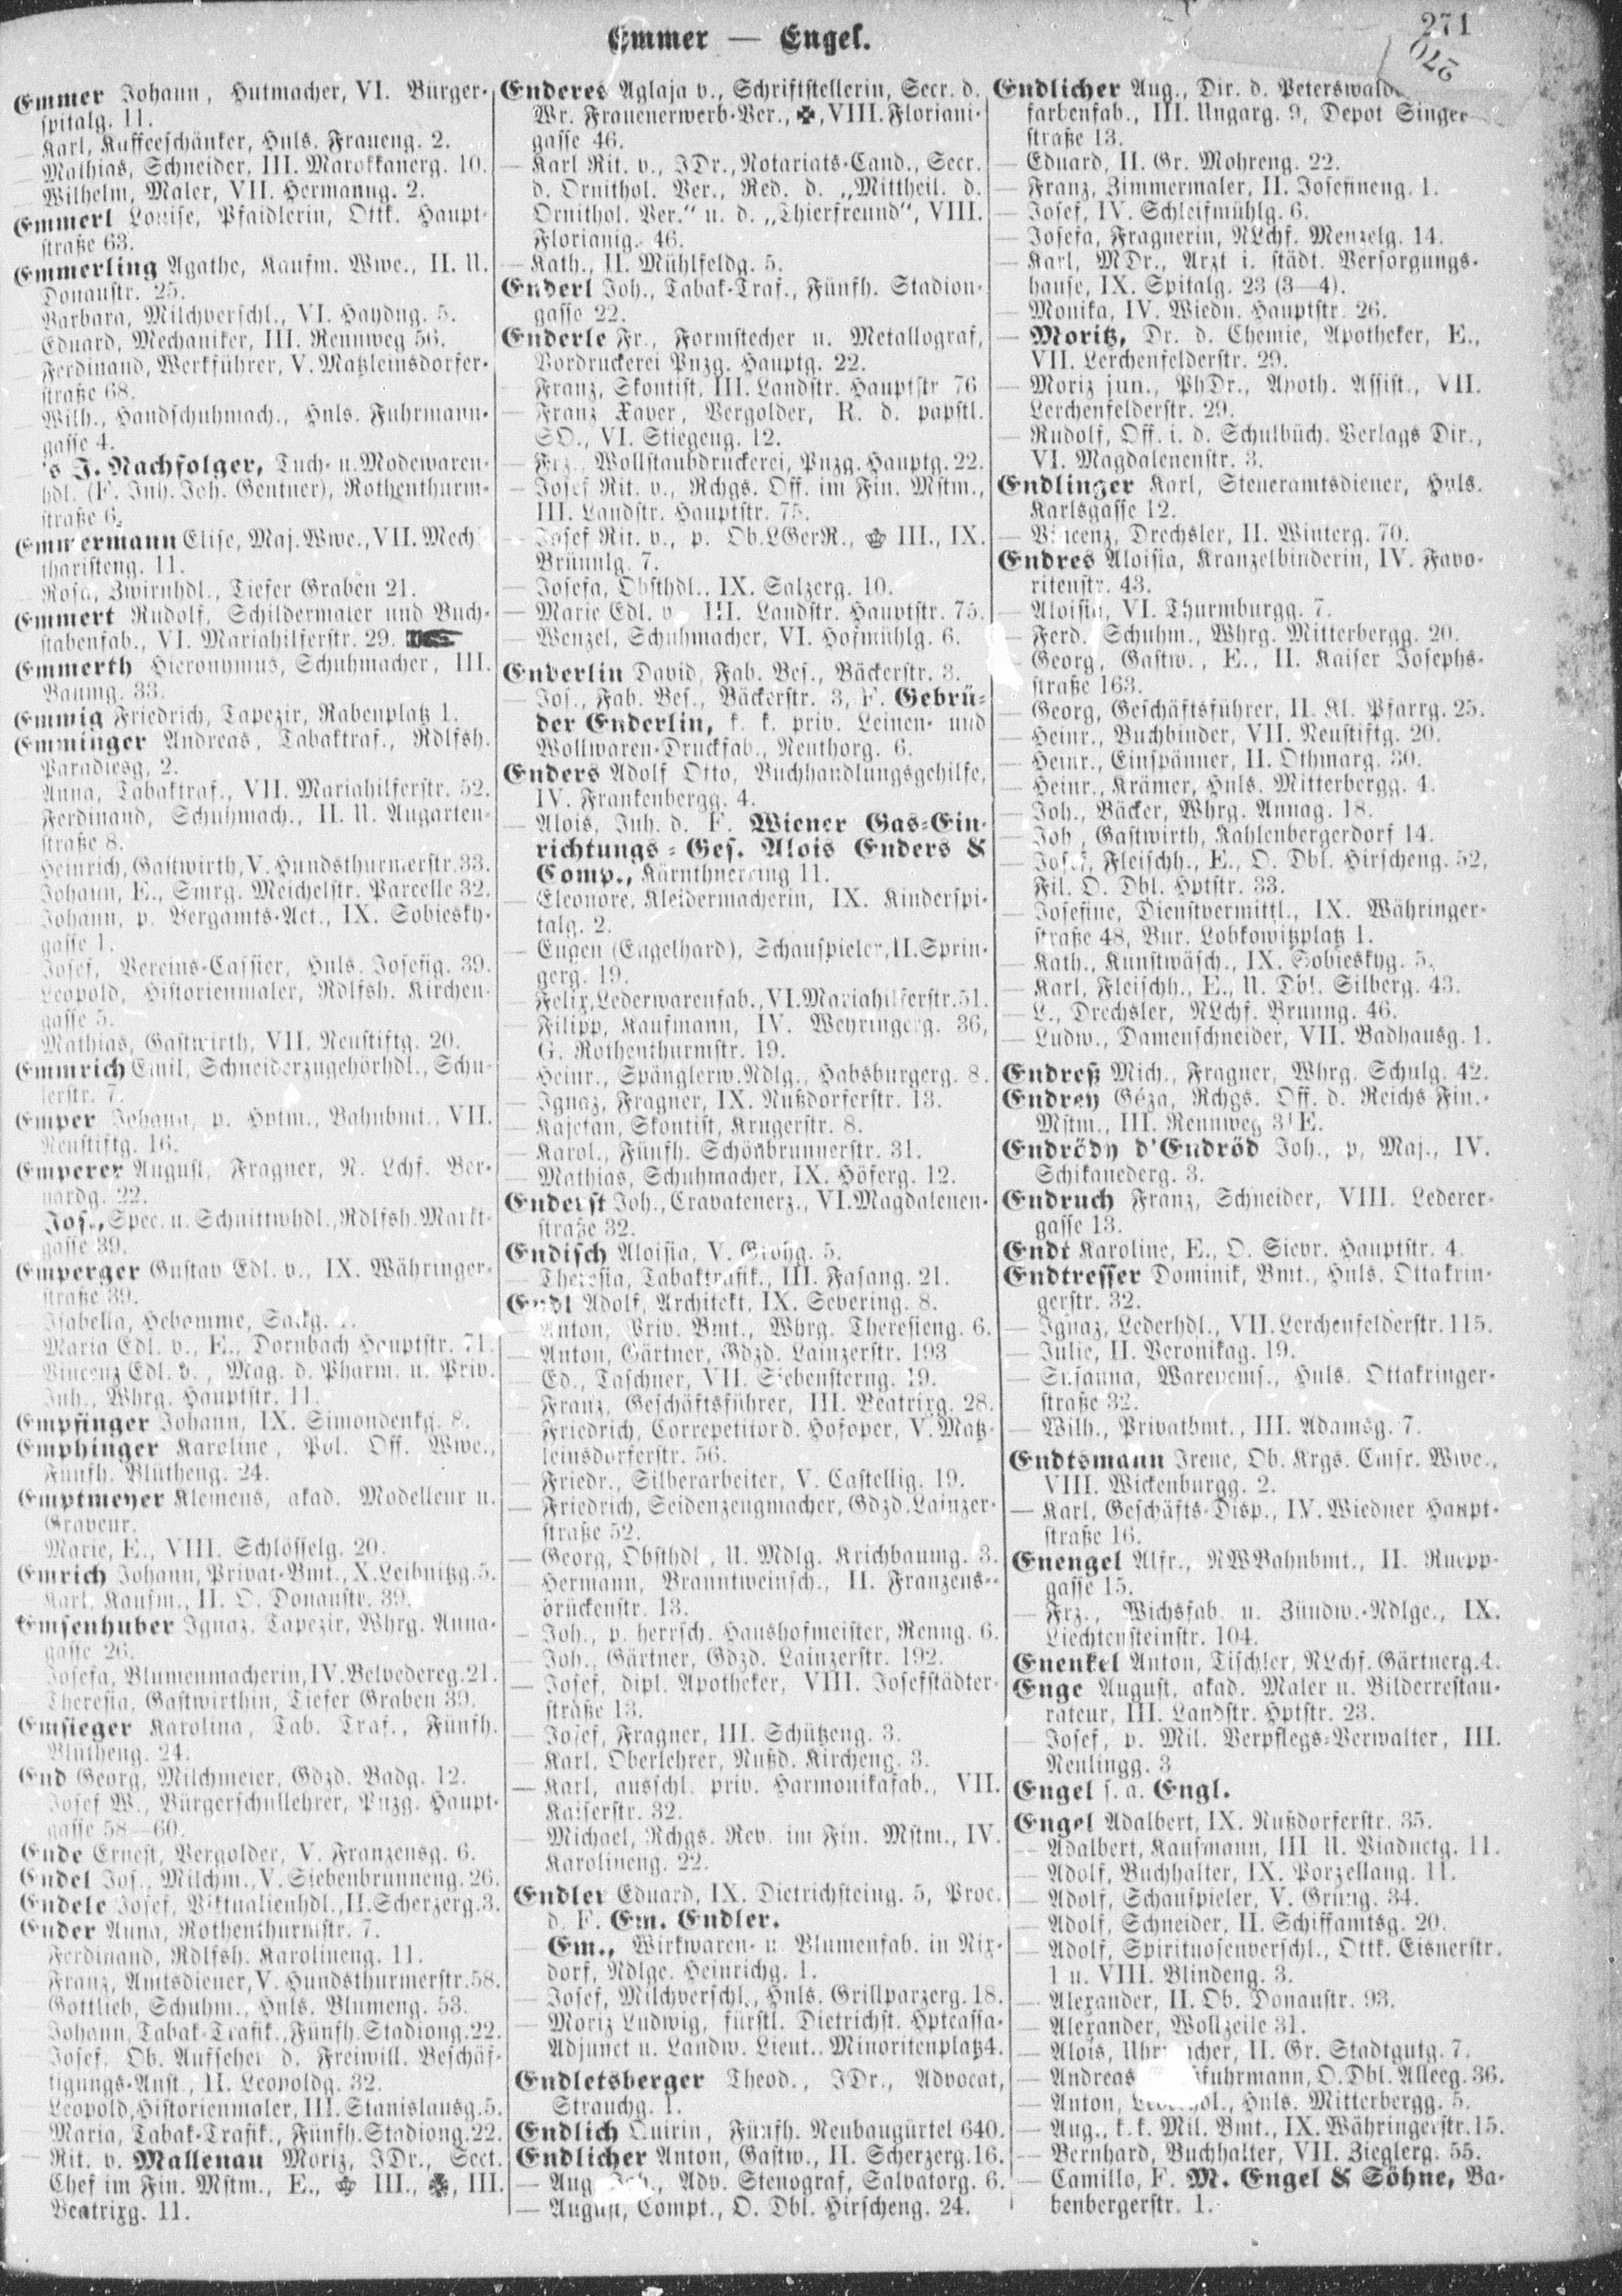 Emmer — Engel.
271
270
Emmer Johann, Hutmacher, VI. Bürger-
spitalg. 11.
Karl, Kaffeeschänker, Hnls. Fraueng. 2.
Mathias, Schneider, III. Marokkanerg. 10.
Wilhelm, Maler, VII. Hermanng. 2.
Emmerl Louise, Pfaidlerin, Ottk. Haupt-
straße 63.
Emmerling Agathe, Kaufm. Wwe., II. U.
Donaustr. 25.
Barbara, Milchverschl., VI. Haydng. 5.
Eduard, Mechaniker, III. Rennweg 56.
Ferdinand, Werkführer, V. Matzleinsdorfer-
straße 68.
Wilh., Handschuhmach., Hnls. Fuhrmann-
gasse 4.
's J. Nachfolger, Tuch- u. Modewaren-
hdl. (F. Inh. Joh. Gentner), Rothenthurm-
straße 6.
Emmermann Elise, Maj. Wwe., VII. Mech
tharisteng. 11.
Rosa, Zwirnhdl., Tiefer Graben 21.
Emmert Rudolf, Schildermaler und Buch-
stabenfab., VI. Mariahilferstr. 29.
Emmerth Hieronymus, Schuhmacher, III.
Baumg. 33.
Emmig Friedrich, Tapezir, Rabenplatz 1.
Emminger Andreas, Tabaktraf., Rdlfsh.
Paradiesg. 2.
Anna, Tabaktraf., VII. Mariahilferstr. 52.
Ferdinand, Schuhmach., II. U. Augarten-
straße 8.
Heinrich, Gastwirth, V. Hundsthurmerstr. 33.
Johann, E., Smrg. Meichelstr. Parcelle 32.
Johann, p. Bergamts-Act., IX. Sobiesky-
gasse 1.
Josef, Vereins-Cassier, Hnls. Josefig. 39.
Leopold, Historienmaler, Rdlfsh. Kirchen-
gasse 5.
Mathias, Gastwirth, VII. Neustiftg. 20.
Emmrich Emil, Schneiderzugehörhdl., Schu-
lerstr. 7.
Emper Johann, p. Hptm., Bahnbmt., VII.
Neustiftg. 16.
Emperer August, Fragner, N. Lchf. Ber-
nardg. 22.
Jos., Spec. u. Schnittwhdl., Rdlfsh. Markt-
gasse 39.
Emperger Gustav Edl. v., IX. Währinger-
straße 39.
Isabella, Hebamme, Sackg.
Maria Edl. v., E., Dornbach Hauptstr. 71.
Vincenz Edl. v., Mag. d. Pharm. u. Priv.
Inh., Whrg. Hauptstr. 11.
Empfinger Johann, IX. Simondenkg. 8.
Emphinger Karoline, Pol. Off. Wwe.,
Fünfh. Blütheng. 24.
Emptmeyer Klemens, akad. Modelleur u.
Graveur.
Marie, E., VIII. Schlösselg. 20.
Emrich Johann, Privat-Bmt., X. Leibnitzg. 5.
Karl, Kaufm., II. O. Donaustr. 39.
Emsenhuber Ignaz, Tapezir, Whrg. Anna-
gasse 26.
Josefa, Blumenmacherin, IV. Belvedereg. 21.
Theresia, Gastwirthin, Tiefer Graben 39.
Emsieger Karolina, Tab. Traf., Fünfh.
Blütheng. 24.
End Georg, Milchmeier, Gdzd. Badg. 12.
Josef W., Bürgerschullehrer, Pnzg. Haupt-
gasse 58—60.
Ende Ernest, Vergolder, V. Franzensg. 6.
Endel Jos., Milchm., V. Siebenbrunneng. 26.
Endele Josef, Viktualienhdl., II. Scherzerg. 3.
Ender Anna, Rothenthurmstr. 7.
Ferdinand, Rdlfsh. Karolineng. 11.
Franz, Amtsdiener, V. Hundsthurmerstr. 58.
Gottlieb, Schuhm., Hnls. Blumeng. 53.
Johann, Tabak-Trafik., Fünfh. Stadiong. 22.
Josef, Ob. Aufseher d. Freiwill. Beschäf-
tigungs-Anst., II. Leopoldg. 32.
Leopold, Historienmaler, III. Stanislausg. 5.
Maria, Tabak-Trafik., Fünfh. Stadiong. 22.
— Rit. v. Mallenau Moriz, JDr., Sect.
Chef im Fin. Mstm., E., III., III.
Beatrixg. 11.
Enderes Aglaja v., Schriftstellerin, Secr. d.
Wr. Frauenerwerb-Ver., ✠, VIII. Floriani-
gasse 46.
— Karl Rit. v., JDr., Notariats-Cand., Secr.
d. Ornithol. Ver., Red. d. „Mittheil. d.
Ornithol. Ver." u. d. „Thierfreund", VIII.
Florianig. 46.
— Kath., II. Mühlfeldg. 5.
Enderl Joh., Tabak-Traf., Fünfh. Stadion-
gasse 22.
Enderle Fr., Formstecher u. Metallograf,
Vordruckerei Pnzg. Hauptg. 22.
— Franz, Skontist, III. Landstr. Hauptstr 76
— Franz Xaver, Vergolder, R. d. päpstl.
SO., VI. Stiegeng. 12.
— Frz., Wollstaubdruckerei, Pnzg. Hauptg. 22.
— Josef Rit. v., Rchgs. Off. im Fin. Mstm.,
III. Landstr. Hauptstr. 75.
— Josef Rit. v., p. Ob.LGerR., III., IX.
Brünnlg. 7.
— Josefa, Obsthdl., IX. Salzerg. 10.
— Marie Edl. v., III. Landstr. Hauptstr. 75.
— Wenzel, Schuhmacher, VI. Hofmühlg. 6.
Enderlin David, Fab. Bes., Bäckerstr. 3.
— Jos., Fab. Bes., Bäckerstr. 3, F. Gebrü-
der Enderlin, k. k. priv. Leinen- und
Wollwaren-Druckfab., Neuthorg. 6.
Enders Adolf Otto, Buchhandlungsgehilfe,
IV. Frankenbergg. 4.
— Alois, Inh. d. F. Wiener Gas-Ein-
richtungs-Ges. Alois Enders &
Comp., Kärnthnerring 11.
— Eleonore, Kleidermacherin, IX. Kinderspi-
talg. 2.
— Eugen (Engelhard), Schauspieler, II. Sprin-
gerg. 19.
— Felix, Lederwarenfab., VI. Mariahilferstr. 51.
— Filipp, Kaufmann, IV. Weyringerg. 36,
G. Rothenthurmstr. 19.
— Heinr., Spänglerw. Ndlg., Habsburgerg. 8.
— Ignaz, Fragner, IX. Nußdorferstr. 13.
— Kajetan, Skontist, Krugerstr. 8.
— Karol., Fünfh. Schönbrunnerstr. 31.
— Mathias, Schuhmacher, IX. Höferg. 12.
Enderst Joh., Cravatenerz., VI. Magdalenen-
straße 32.
Endisch Aloisia, V. Grohg. 5.
— Theresia, Tabaktrafik., III. Fasang. 21.
Endl Adolf, Architekt, IX. Severing. 8.
Anton, Priv. Bmt., Whrg. Theresieng. 6.
— Anton, Gärtner, Gdzd. Lainzerstr. 193
— Ed., Taschner, VII. Siebensterng. 19.
— Franz, Geschäftsführer, III. Beatrixg. 28.
— Friedrich, Correpetitor d. Hofoper, V. Matz-
leinsdorferstr. 56.
— Friedr., Silberarbeiter, V. Castellig. 19.
— Friedrich, Seidenzeugmacher, Gdzd. Lainzer-
straße 52.
— Georg, Obsthdl., U. Mdlg. Krichbaumg. 3.
— Hermann, Branntweinsch., II. Franzens-
brückenstr. 13.
— Joh., p. herrsch. Haushofmeister, Renng. 6.
— Joh., Gärtner, Gdzd. Lainzerstr. 192.
— Josef, dipl. Apotheker, VIII. Josefstädter-
straße 13.
— Josef, Fragner, III. Schützeng. 3.
— Karl, Oberlehrer, Nußd. Kircheng. 3.
— Karl, ausschl. priv. Harmonikafab., VII.
Kaiserstr. 32.
— Michael, Rchgs. Rev. im Fin. Mstm., IV.
Karolineng. 22.
Endler Eduard, IX. Dietrichsteing. 5, Proc.
d. F. Em. Endler.
— Em., Wirkwaren- u. Blumenfab. in Nix-
dorf, Ndlge. Heinrichg. 1.
— Josef, Milchverschl., Hnls. Grillparzerg. 18.
— Moriz Ludwig, fürstl. Dietrichst. Hptcassa-
Adjunct u. Landw. Lieut., Minoritenplatz 4.
Endletsberger Theod., JDr., Advocat,
Strauchg. 1.
Endlich Quirin, Fünfh. Neubaugürtel 640.
Endlicher Anton, Gastw., II. Scherzerg. 16.
— Aug. Adv. Stenograf, Salvatorg. 6.
— August, Compt., O. Dbl. Hirscheng. 24.
Endlicher Aug., Dir. d. Peterswald
farbenfab., III. Ungarg. 9, Depot Singer
straße 13.
— Eduard, II. Gr. Mohreng. 22.
— Franz, Zimmermaler, II. Josefineng. 1.
— Josef, IV. Schleifmühlg. 6.
— Josefa, Fragnerin, NLchf. Menzelg. 14.
— Karl, MDr., Arzt i. städt. Versorgungs-
hause, IX. Spitalg. 23 (3—4).
— Monika, IV. Wiedn. Hauptstr. 26.
— Moritz, Dr. d. Chemie, Apotheker, E.,
VII. Lerchenfelderstr. 29.
— Moriz jun., PhDr., Apoth. Assist., VII.
Lerchenfelderstr. 29.
— Rudolf, Off. i. d. Schulbüch. Verlags Dir.,
VI. Magdalenenstr. 3.
Endlinger Karl, Steueramtsdiener, Hnls.
Karlsgasse 12.
— Vincenz, Drechsler, II. Winterg. 70.
Endres Aloisia, Kranzelbinderin, IV. Favo-
ritenstr. 43.
— Aloisia, VI. Thurmburgg. 7.
— Ferd. Schuhm., Whrg. Mitterbergg. 20.
Georg, Gastw., E., II. Kaiser Josephs-
straße 163.
— Georg, Geschäftsführer, II. Kl. Pfarrg. 25.
— Heinr., Buchbinder, VII. Neustiftg. 20.
— Heinr., Einspänner, II. Othmarg. 30.
— Heinr., Krämer, Hnls. Mitterbergg. 4.
— Joh., Bäcker, Whrg. Annag. 18.
— Joh., Gastwirth, Kahlenbergerdorf 14.
— Josef, Fleischh., E., O. Dbl. Hirscheng. 52,
Fil. O. Dbl. Hptstr. 33.
— Josefine, Dienstvermittl., IX. Währinger-
straße 48, Bur. Lobkowitzplatz 1.
— Kath., Kunstwäsch., IX. Sobieskyg. 5.
— Karl, Fleischh., E., U. Dbl. Silberg. 43.
— L., Drechsler, NLchf. Brunng. 46.
— Ludw., Damenschneider, VII. Badhausg. 1.
Endreß Mich., Fragner, Whrg. Schulg. 42.
Endrey Géza, Rchgs. Off. d. Reichs Fin.-
Mstm., III. Rennweg 31E.
Endrödy d'Endröd Joh., p. Maj., IV.
Schikanederg. 3.
Endruch Franz, Schneider, VIII. Lederer-
gasse 13.
Endt Karoline, E., O. Sievr. Hauptstr. 4.
Endtresser Dominik, Bmt., Hnls. Ottakrin-
gerstr. 32.
— Ignaz, Lederhdl., VII. Lerchenfelderstr. 115.
— Julie, II. Veronikag. 19.
— Susanna, Hnls. Ottakringer-
straße 32.
— Wilh., Privatbmt., III. Adamsg. 7.
Endtsmann Irene, Ob. Krgs. Cmsr. Wwe.,
VIII. Wickenburgg. 2.
— Karl, Geschäfts-Disp., IV. Wiedner Haupt-
straße 16.
Enengel Alfr., NWBahnbmt., II. Ruepp-
gasse 15.
— Frz., Wichsfab. u. Zündw.-Ndlge., IX.
Liechtensteinstr. 104.
Enenkel Anton, Tischler, NLchf. Gärtnerg. 4.
Enge August, akad. Maler u. Bilderrestau-
rateur, III. Landstr. Hptstr. 23.
— Josef, p. Mil. Verpflegs-Verwalter, III.
Neulingg. 3
Engel s. a. Engl.
Engel Adalbert, IX. Nußdorferstr. 35.
— Adalbert, Kaufmann, III U. Viaductg. 11.
— Adolf, Buchhalter, IX. Porzellang. 11.
— Adolf, Schauspieler, V. Grüng. 34.
— Adolf, Schneider, II. Schiffamtsg. 20.
— Adolf, Spirituosenverschl., Ottk. Eisnerstr.
1 u. VIII. Blindeng. 3.
— Alexander, II. Ob. Donaustr. 93.
— Alexander, Wollzeile 31.
— Alois, II. Gr. Stadtgutg. 7.
— Andreas O. Dbl. Alleeg. 36.
— Anton, Hnls. Mitterbergg. 5.
— Aug., k. k. Mil. Bmt., IX. Währingerstr. 15.
— Bernhard, Buchhalter, VII. Zieglerg. 55.
— Camillo, F. M. Engel & Söhne, Ba-
benbergerstr. 1.